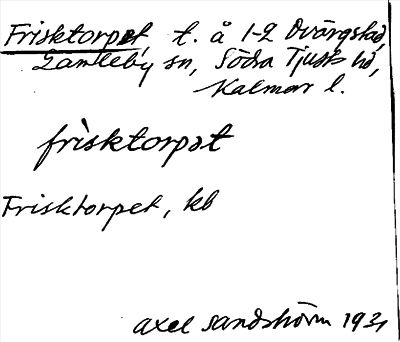 Frisktorpet, t. å 1-2 Dvärgstad,
Gamleby sn, Södra Tjust hd,
Kalmar l.
frìsktorpət
Frisktorpet, kb
Axel Sandström 1931